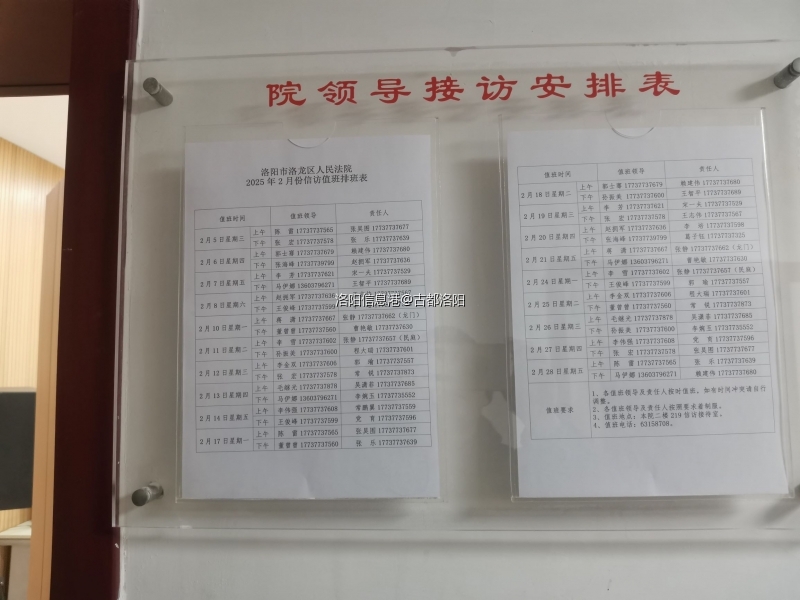 院领导接访安排表
洛阳市洛龙区人民法院
2025年2月份信访值班排班表
值班时间 值班领导 责任人
2月5日星期三 上午 陈 雷 17737737565 张昊图 17737737677
下午 张 宏 17737737578 张 乐 17737737639
2月6日星期四 上午 郭士骞 17737737679 顾建伟 17737737680
下午 张海峰 17737739799 赵拥军 17737737636
2月7日星期五 上午 李 芳 17737737621 宋一夫 17737737529
下午 马伊娜 13603796271 王智平 17737737689
2月8日星期六 上午 赵拥军 17737737636
下午 王俊峰 17737737599
2月10日星期一 上午 蒋 潇 17737737667 张静 17737737662（龙门）
下午 董普普 17737737560 曹艳敏 17737737630
2月11日星期二 上午 李 雪 17737737602 张静 17737737657（民庭）
下午 孙振美 17737737600 程大瑞 17737737601
2月12日星期三 上午 李金双 17737737606 郭 瑜 17737737557
下午 张 宏 17737737578 常 锐 17737737873
2月13日星期四 上午 毛继光 17737737878 吴潇若 17737737685
下午 马伊娜 13603796271 李婉玉 17737735552
2月14日星期五 上午 李伟强 17737737608 常鹏翼 17737737559
下午 王俊峰 17737737599 党 育 17737737596
2月17日星期一 上午 陈 雷 17737737565 张昊图 17737737677
下午 董普普 17737737560 张 乐 17737737639
值班时间 值班领导 责任人
2月18日星期二 上午 郭士骞 17737737679 顾建伟 17737737680
下午 孙振美 17737737600 王智平 17737737689
2月19日星期三 上午 李 芳 17737737621 宋一夫 17737737529
下午 张 宏 17737737578 王志伟 17737737567
2月20日星期四 上午 赵拥军 17737737636 李 刚 17737737598
下午 张海峰 17737739799
2月21日星期五 上午 蒋 潇 17737737667 张静 17737737662（龙门）
下午 马伊娜 13603796271 曹艳敏 17737737630
2月24日星期一 上午 李 雪 17737737602 张静 17737737657（民庭）
下午 王俊峰 17737737599 郭 瑜 17737737557
2月25日星期二 上午 李金双 17737737606 程大瑞 17737737601
下午 董普普 17737737560 常 锐 17737737873
2月26日星期三 上午 毛继光 17737737878 吴潇若 17737737685
下午 孙振美 17737737600 李婉玉 17737735552
2月27日星期四 上午 李伟强 17737737608 党 育 17737737596
下午 张 宏 17737737578 张昊图 17737737677
2月28日星期五 上午 陈 雷 17737737565 张 乐 17737737639
下午 马伊娜 13603796271 顾建伟 17737737680
值班要求
1、各值班领导及责任人按时值班，如有时间冲突请自行
调整。
2、各值班领导及责任人按照要求着制服。
3、值班地点：本院二楼219信访接待室。
4、值班电话：63158708。
洛阳信息港@古都洛阳